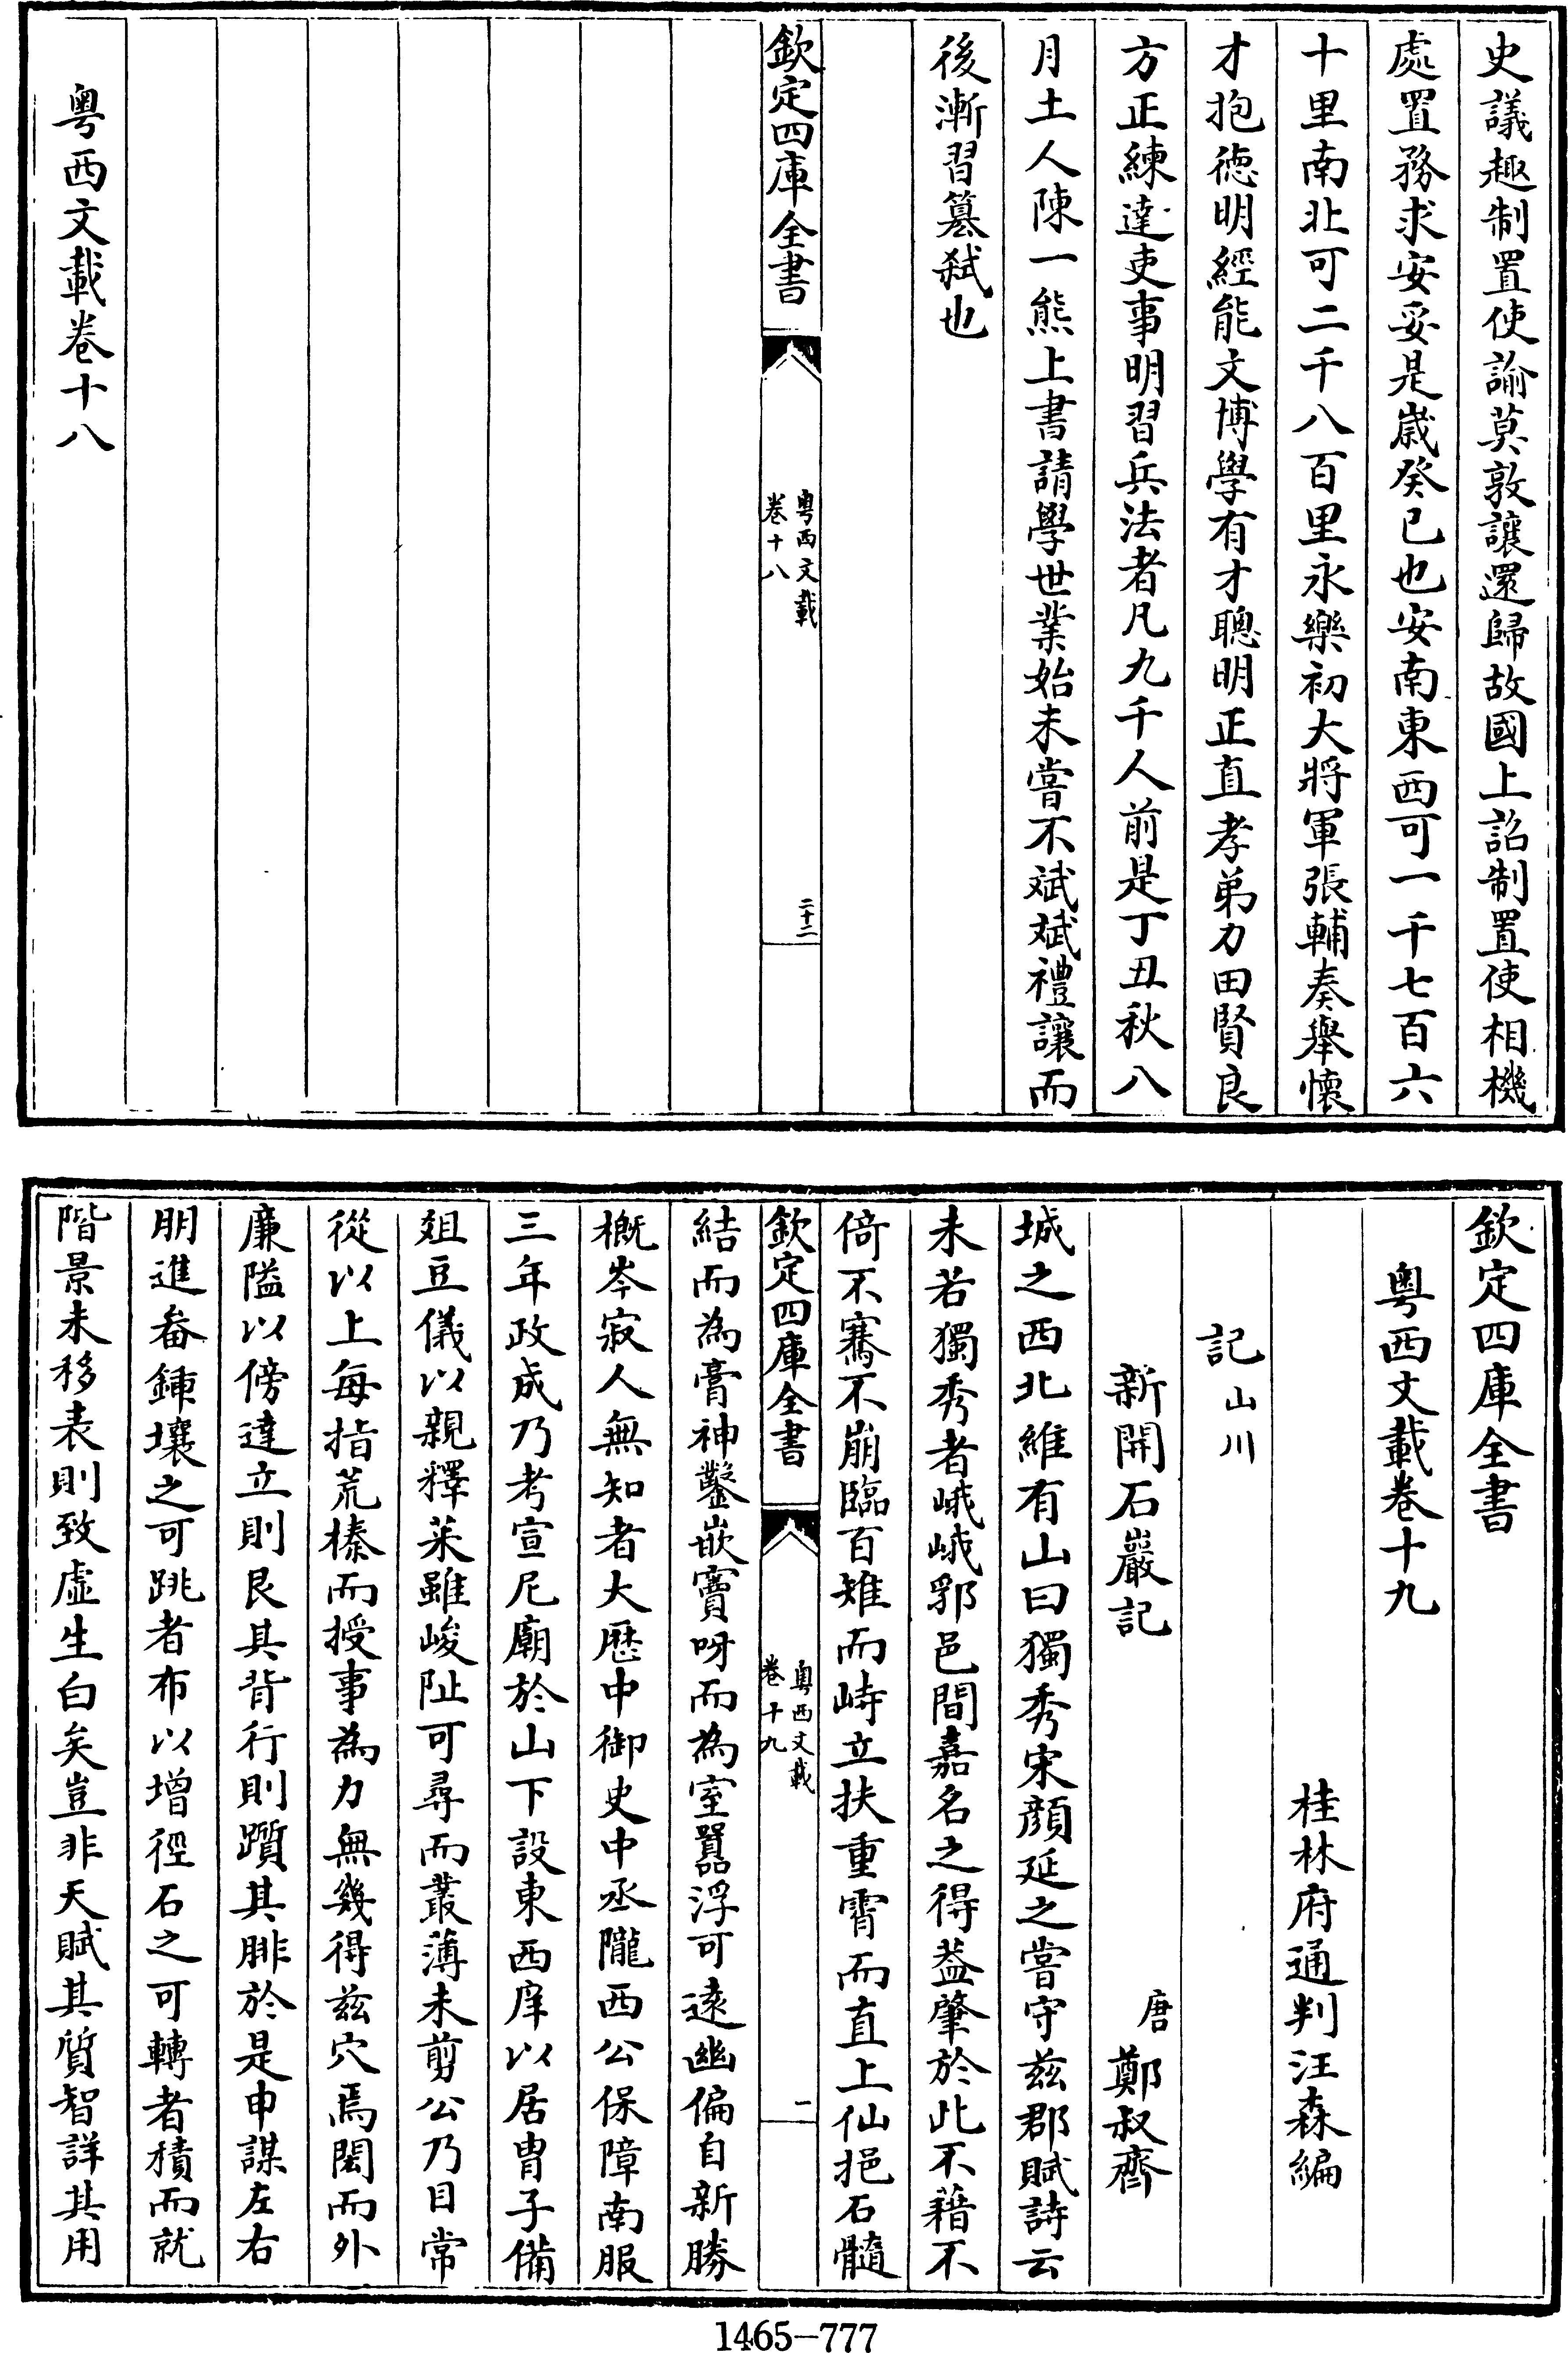 史議趣制置使諭莫敦讓還歸故國上詔制置使相機
處置務求安妥是歲癸已也安南東西可一千七百六
十里南北可二千八百里永樂初大將軍張輔奏舉懷
才抱徳明經能文博學有才聰明正直孝弟力田賢良
方正練達吏事明習兵法者凡九千人前是丁丑秋八
月土人陳一熊上書請學世業始未嘗不斌斌禮讓而
後漸習簒弑也
欽定四庫全書
粤西文載
卷十八
二十二
粤西文載卷十八
欽定四庫全書
粤西文載卷十九
桂林府通判汪森編
記山川
新開石巖記
唐鄭叔齊
城之西北維有山曰獨秀宋顔延之嘗守兹郡賦詩云
未若獨秀者峨峨郛邑間嘉名之得葢肇於此不藉不
倚不騫不崩臨百雉而峙立扶重霄而直上仙挹石髓
欽定四庫全書
粤西文載
卷十九
一
結而為膏神鑿嵌竇呀而為室嚣浮可遠幽偏自新勝
概岑寂人無知者大厯中御史中丞隴西公保障南服
三年政成乃考宣尼廟於山下設東西庠以居胄子備
俎豆儀以親釋菜雖峻阯可尋而叢薄未剪公乃目常
從以上每指荒榛而授事為力無幾得兹穴焉閎而外
廉隘以傍達立則艮其背行則躓其腓於是申謀左右
朋進畚鍤壤之可跳者布以增徑石之可轉者積而就
階景未移表則致虚生白矣豈非天賦其質智詳其用
1465-777